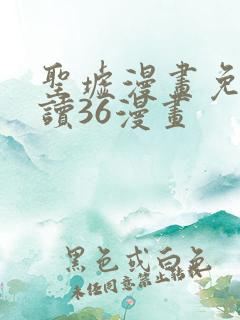 聖墟漫畫免
讀36漫畫
黑色或白色
未任同意禁止转载